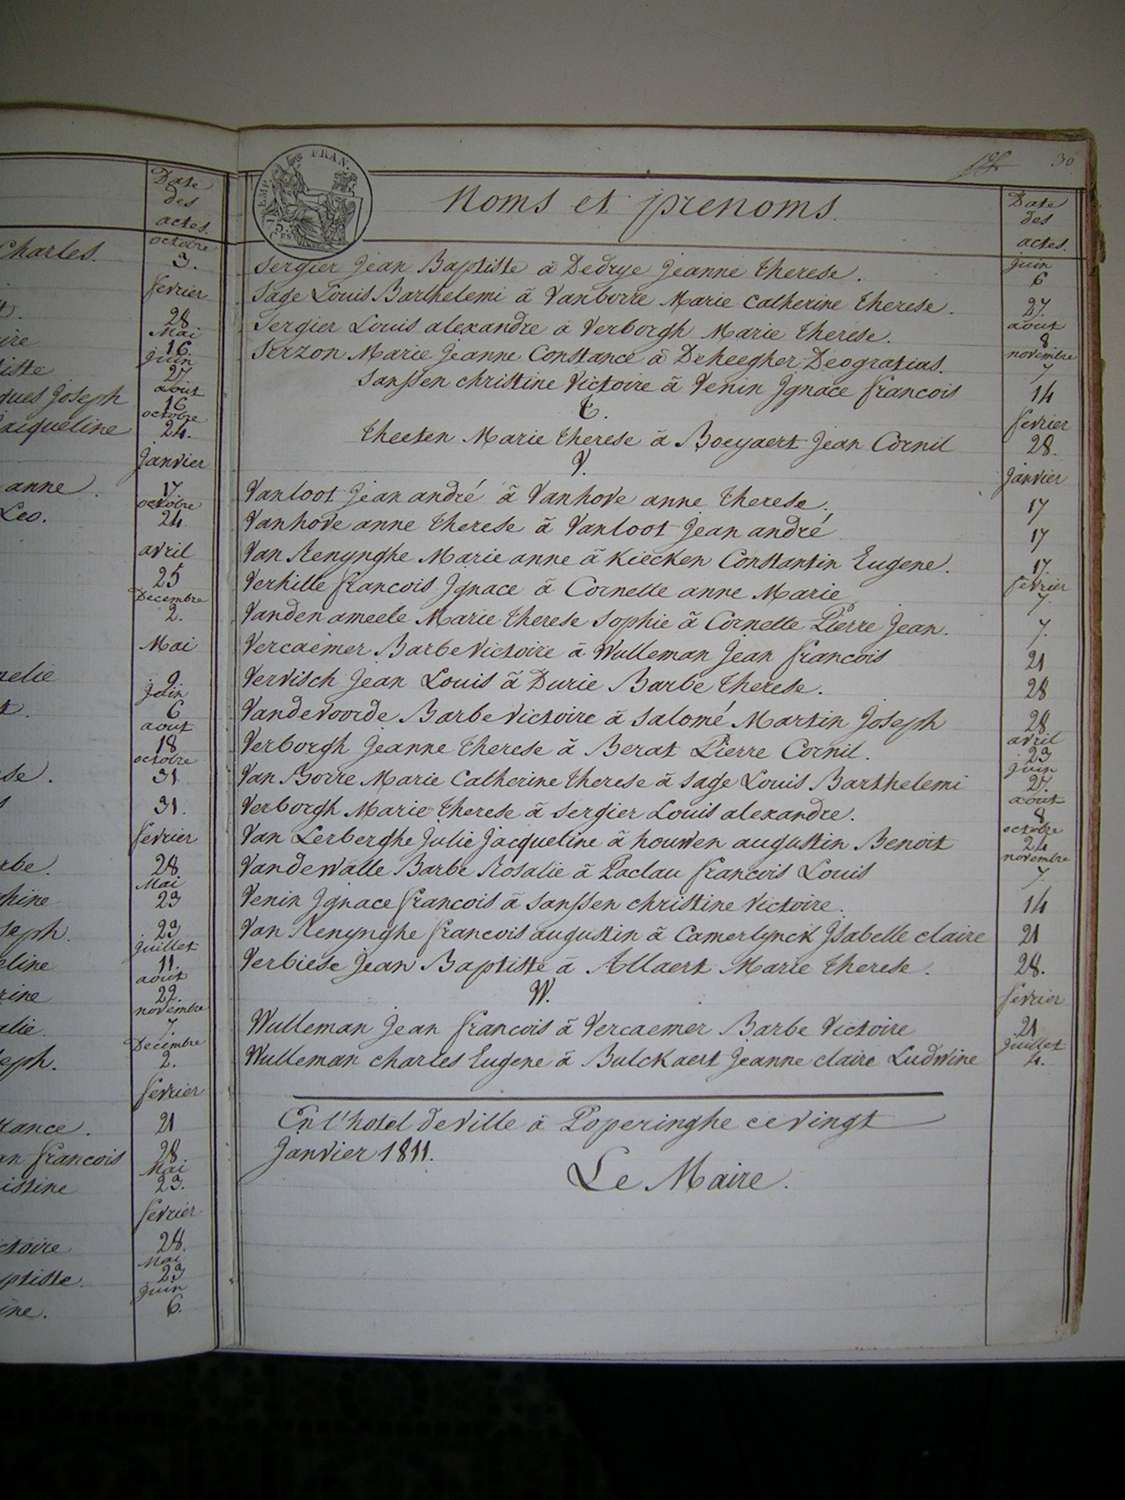 Date
des
actes.
Charles.
octobre
3.
fevrier
28
Mai
16.
Juin
tiste
27
aout
ques Joseph
16
octobre
aiqueline
24.
Janvier
anne.
17
octobre
Leo.
24
avril
25
Decembre
2.
Mai
nelie
9
Juin
6
aout
18
octobre
31.
31.
fevrier
rbe.
28.
Mai
phine
23
seph.
23
Juillet
eline
11.
aout
rine
29.
novembre
alie.
7.
Decembre
seph.
2.
fevrier
tance.
21
an francois
28.
Mai
istine
23.
fevrier
ctoire
28.
Mai
ptiste.
23
Juin
ine.
6.
EMP. FRAN.
30
Noms et prenoms.
Date
des
actes.
Juin
Sergier Jean Baptiste à Dedrye Jeanne Therese.
6
Sage Louis Barthelemi à Vanborre Marie Catherine Therese.
27.
aout
Sergier Louis alexandre à Verborgh Marie Therese.
8
novembre
Serzon Marie Jeanne Constance à Deheegher Deogratias.
7
Sanssen christine Victoire à Venin Ignace francois
14
T.
fevrier
Theeten Marie Therese à Boeyaert Jean Cornil
28.
V.
Janvier
Vanloot Jean andré à Vanhove anne Therese.
17
Vanhove anne Therese à Vanloot Jean andré
17
Van Renynghe Marie anne à Kiecken Constantin Eugene.
17.
fevrier
Verhille francois Ignace à Cornette anne Marie
7.
Vanden ameele Marie Therese Sophie à Cornette Pierre Jean.
7.
Vercaemer Barbe Victoire à Wulleman Jean francois
21
Vervisch Jean Louis à Durie Barbe Therese.
28
Vandevoorde Barbe Victoire à Salomé Martin Joseph
28.
avril
Verborgh Jeanne Therese à Berat Pierre Cornil.
23
Juin
Van Borre Marie Catherine Therese à Sage Louis Barthelemi
27.
aout
Verborgh Marie Therese à Sergier Louis alexandre.
8
octobre
Van Lerberghe Julie Jacqueline à houwen augustin Benoit
24
novembre
Vandewalle Barbe Rosalie à Paclau francois Louis
7.
Venin Ignace francois à Sanssen christine Victoire.
14
Van Renynghe francois augustin à Camerlynck Isabelle claire
21
Verbiese Jean Baptiste à Allaert Marie Therese.
28.
W.
fevrier
Wulleman Jean francois à Vercaemer Barbe Victoire
21
Juillet
Wulleman charles Eugene à Bulckaert Jeanne claire Ludwine
4.
En l'hotel de ville à Poperinghe ce vingt
Janvier 1811.
Le Maire.